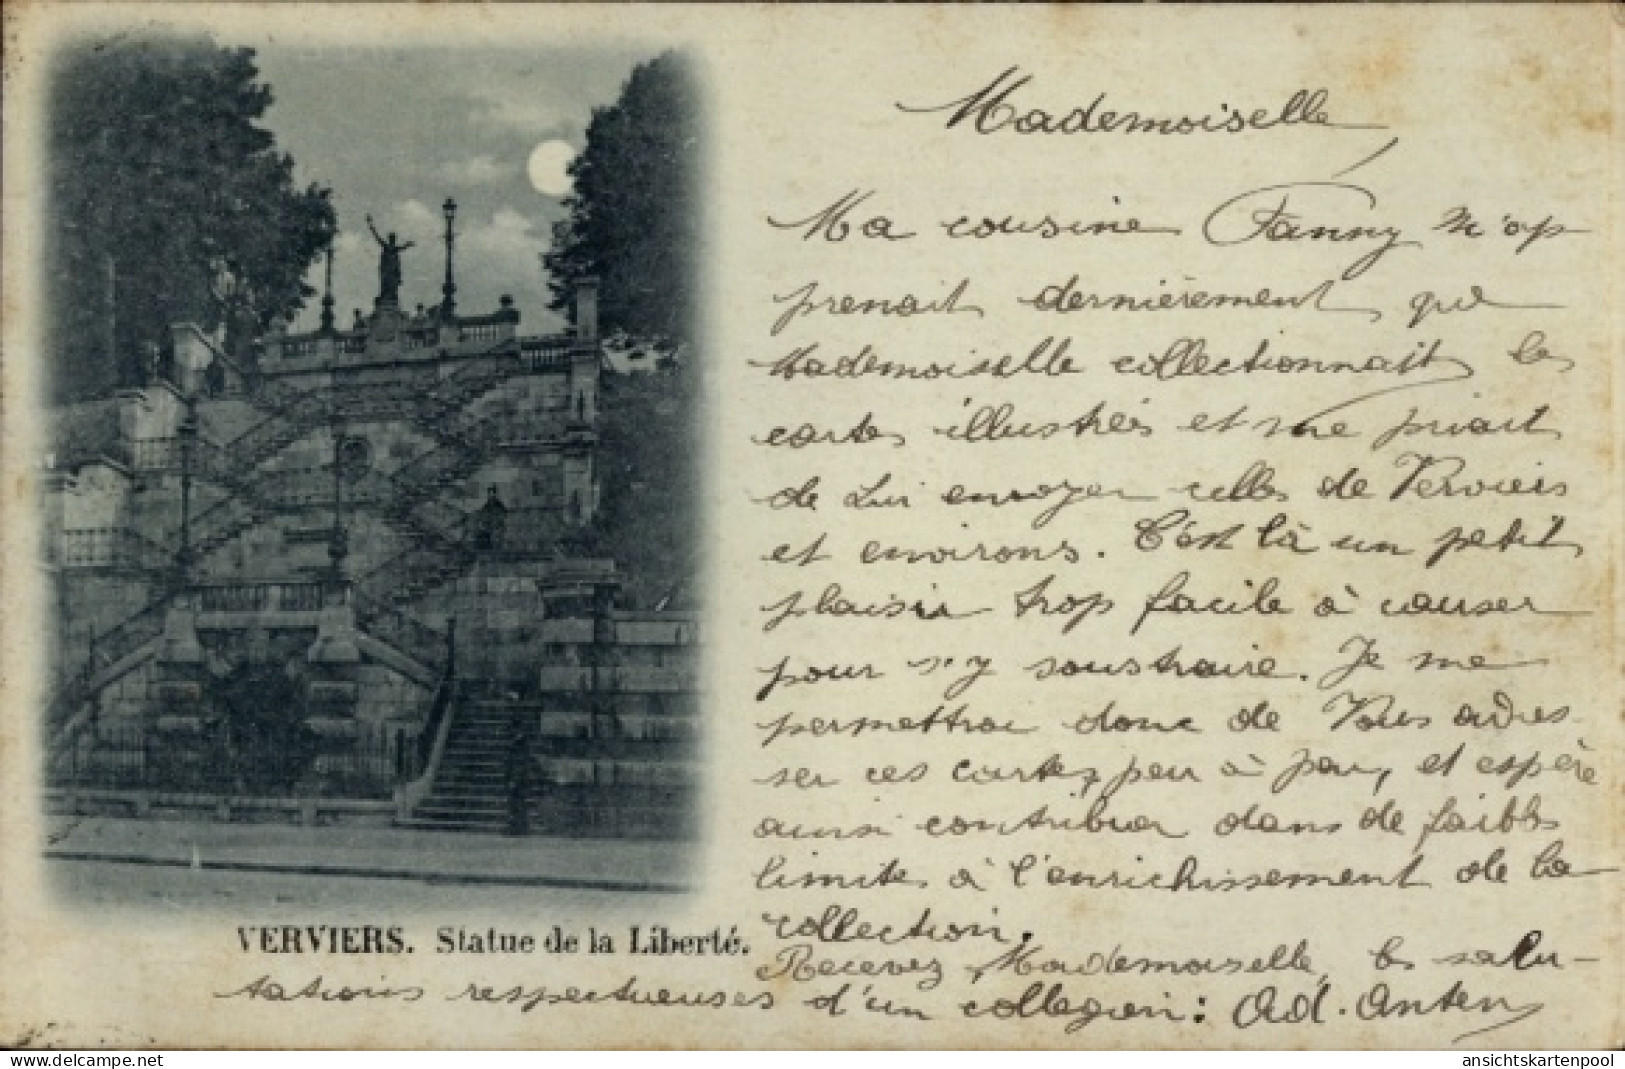 Mademoiselle,
Ma cousine Fanny m'ap
prenait dernièrement que
Mademoiselle collectionnait les
cartes illustrées et me priait
de Lui envoyer celles de Verviers
et environs. C'est là un petit
plaisir trop facile à causer
pour s'y soustraire. Je me
permettrai donc de Vous adres
ser ces cartes, peu à peu, et espère
ainsi contribuer dans de faibles
limites à l'enrichissement de la
collection.
VERVIERS. Statue de la Liberté.
Recevez, Mademoiselle, les salu-
tations respectueuses d'un collégien : Ad. Anten
www.delcampe.net
ansichtskartenpool